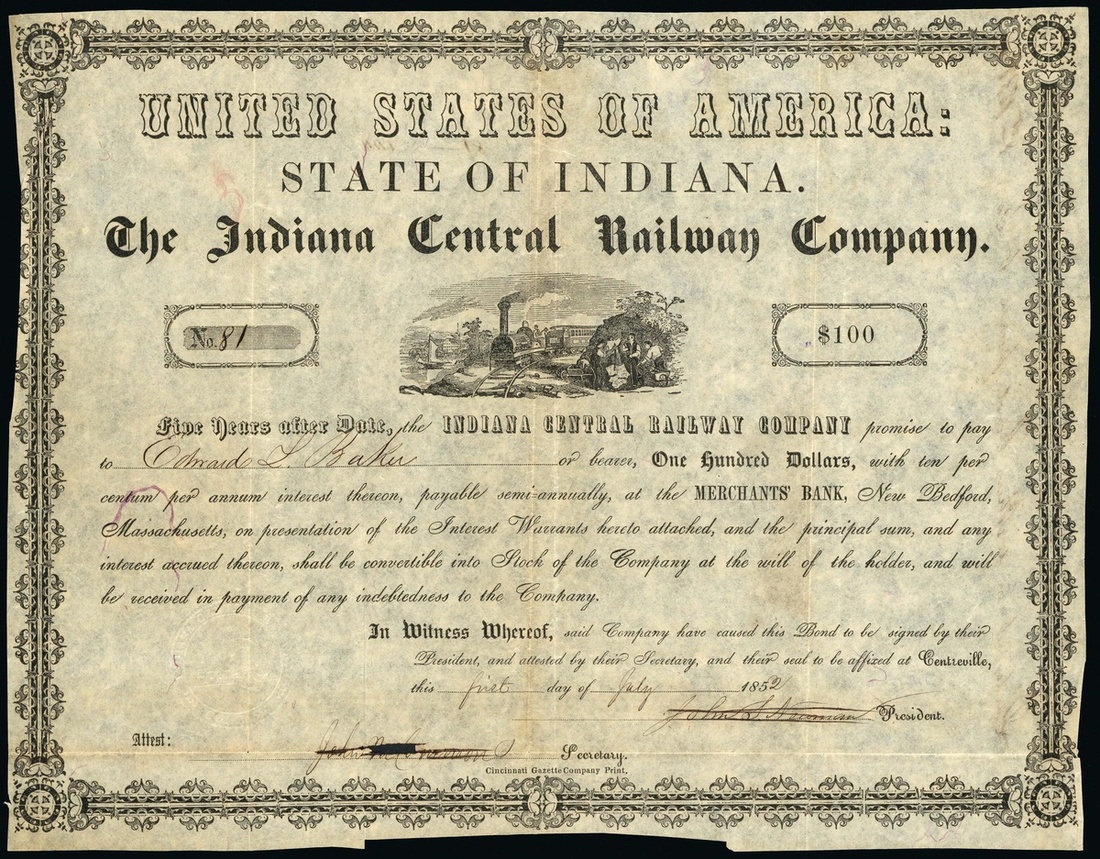 UNITED STATES OF AMERICA:
STATE OF INDIANA.
The Indiana Central Railway Company.
No. 81
$100
Five Years after Date, the INDIANA CENTRAL RAILWAY COMPANY promise to pay
to Edward L. Baker or bearer, One Hundred Dollars, with ten per
centum per annum interest thereon, payable semi-annually, at the MERCHANTS' BANK, New Bedford,
Massachusetts, on presentation of the Interest Warrants hereto attached, and the principal sum, and any
interest accrued thereon, shall be convertible into Stock of the Company at the will of the holder, and will
be received in payment of any indebtedness to the Company.
In Witness Whereof, said Company have caused this Bond to be signed by their
President, and attested by their Secretary, and their seal to be affixed at Centreville,
this first day of July 1852
John S. Newman President.
Attest:
John Secretary.
Cincinnati Gazette Company Print,